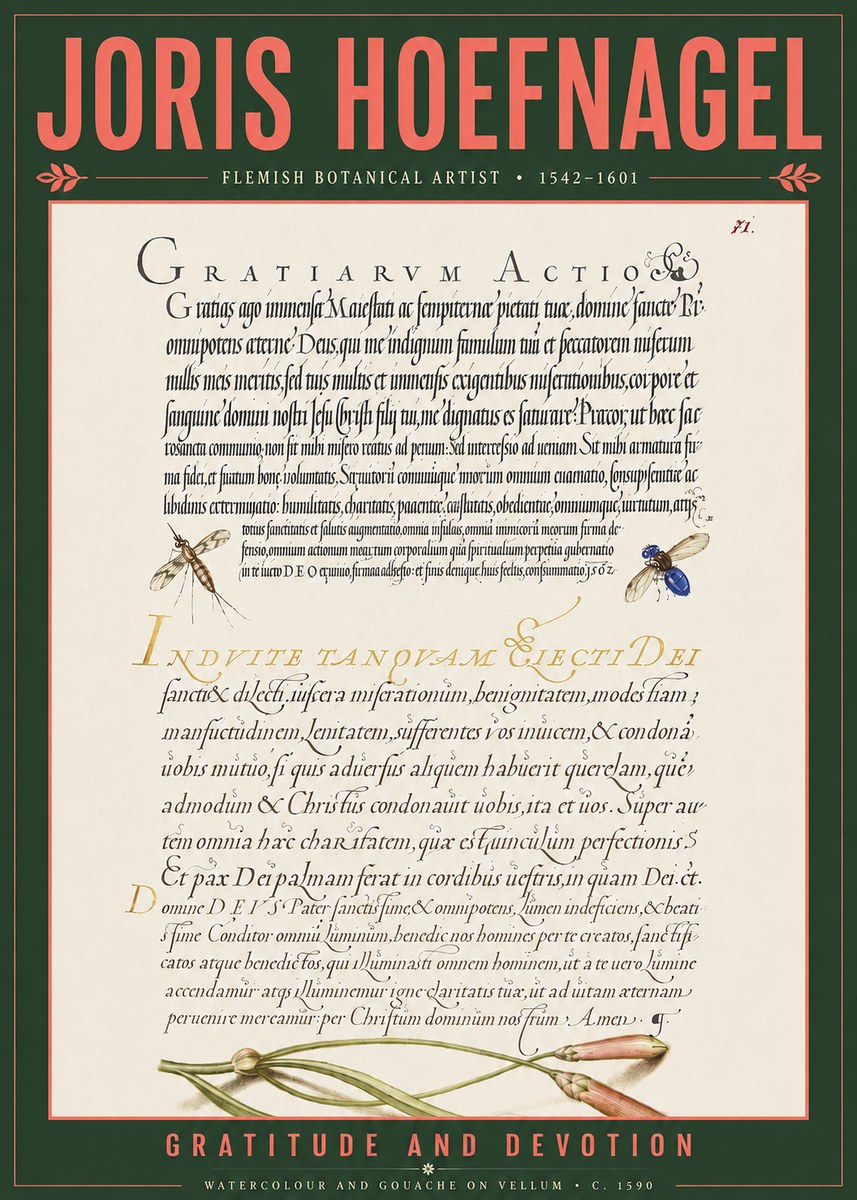 JORIS HOEFNAGEL
FLEMISH BOTANICAL ARTIST • 1542–1601
71.
GRATIARVM ACTIO
Gratias ago immensæ Maiestati ac sempiternæ pietati tuæ, domine sancte
omnipotens æterne Deus, qui me indignum famulum tuū et peccatorem miserum
nullis meis meritis, sed tuis multis et immensis exigentibus miserationibus, corpore et
sanguine domini nostri Jesu Christi filij tui, me dignatus es saturare: Præcor, ut hæc sac
rosancta communio, non sit mihi misero reatus ad penam: Sed intercessio ad ueniam Sit mihi armatura
ma fidei, et scutum bonę uoluntatis, omnium euacuatio, Concupiscentiæ ac
libidinis exterminatio: humilitatis, charitatis, patientiæ, castitatis, obedientiæ, omniumque, uirtutum, atqȝ
totius sanctitatis et salutis augmentatio, omnia omniū inimicorū meorum firma de
fensio, omnium actionum mearum corporalium quā spiritualium perpetua gubernatio
in te DEO firma adhesio: et finis denique huis felix, consummatio, 1562
INDVITE TANQVAM ELECTI DEI
sancti & dilecti, uiscera miserationum, benignitatem, modestiam;
mansuctudinem, Lenitatem, sufferentes vos inuicem, & condonā
uobis mutuo, si quis aduersus aliquem habuerit querelam, quē
admodum & Christus condonauit uobis, ita et uos. Super au
tem omnia hæc charitatem, quæ est uinculum perfectionis
Et pax Dei palmam ferat in cordibus uestris, in quam Dei. ct.
Domine DEVS Pater sanctissime, & omnipotens, Lumen indeficiens, & beati
ssime Conditor omniū Luminum, benedic nos homines per te creatos, sanctifi
catos atque benedictos, qui illuminasti omnem hominem, ut à te uero Lumine
accendamur atqȝ illuminemur igne claritatis tuæ, ut ad uitam æternam
peruenire mereamur: per Christum dominum nostrum. Amen. ¶.
GRATITUDE AND DEVOTION
WATERCOLOUR AND GOUACHE ON VELLUM • C. 1590